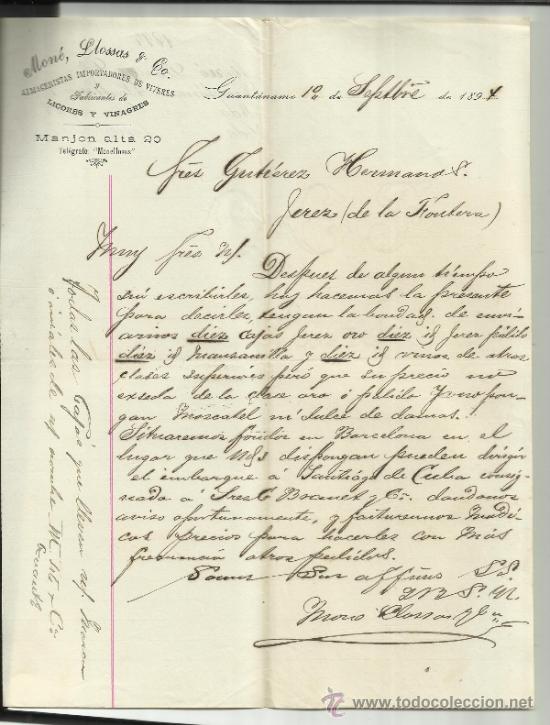 Moné, Llossas y Co.
ALMACENISTAS IMPORTADORES DE VIVERES
y
Fabricantes de
LICORES Y VINAGRES
Manjon alta 20
Telégrafo: "Monellosas"
Guantánamo 10 de Septbre de 1894
Sres Gutiérez Hermanos.
Jerez (de la Frontera)
Muy Sres
Despues de algun tiempo
sin escribirles, hoy hacemos la presente
para decirles tengan la bondad de envi
arnos diez cajas Jerez oro diez id Jerez pálido
diez id Mansanilla y diez id vinos de otras
clases superiores peró que su precio no
exseda de la clase oro ó pálido y no pon
gan Moscatel ni dulce de damas.
Situaremos fondos en Barcelona en el
lugar que Uds dispongan pueden dirigir
el embarque á Santiago de Cuba consig
nada á Sres Brauet y Ca. dandonos
aviso oportunamente, y facturennos modi
cos precios para hacerles con más
frecuencia otros pedidos.
Somos Sus affmos S.S.
Q B S. M.
Mone Llossas y Ca
Todas las cajas que lleven
ó iniciales de
todocoleccion.net